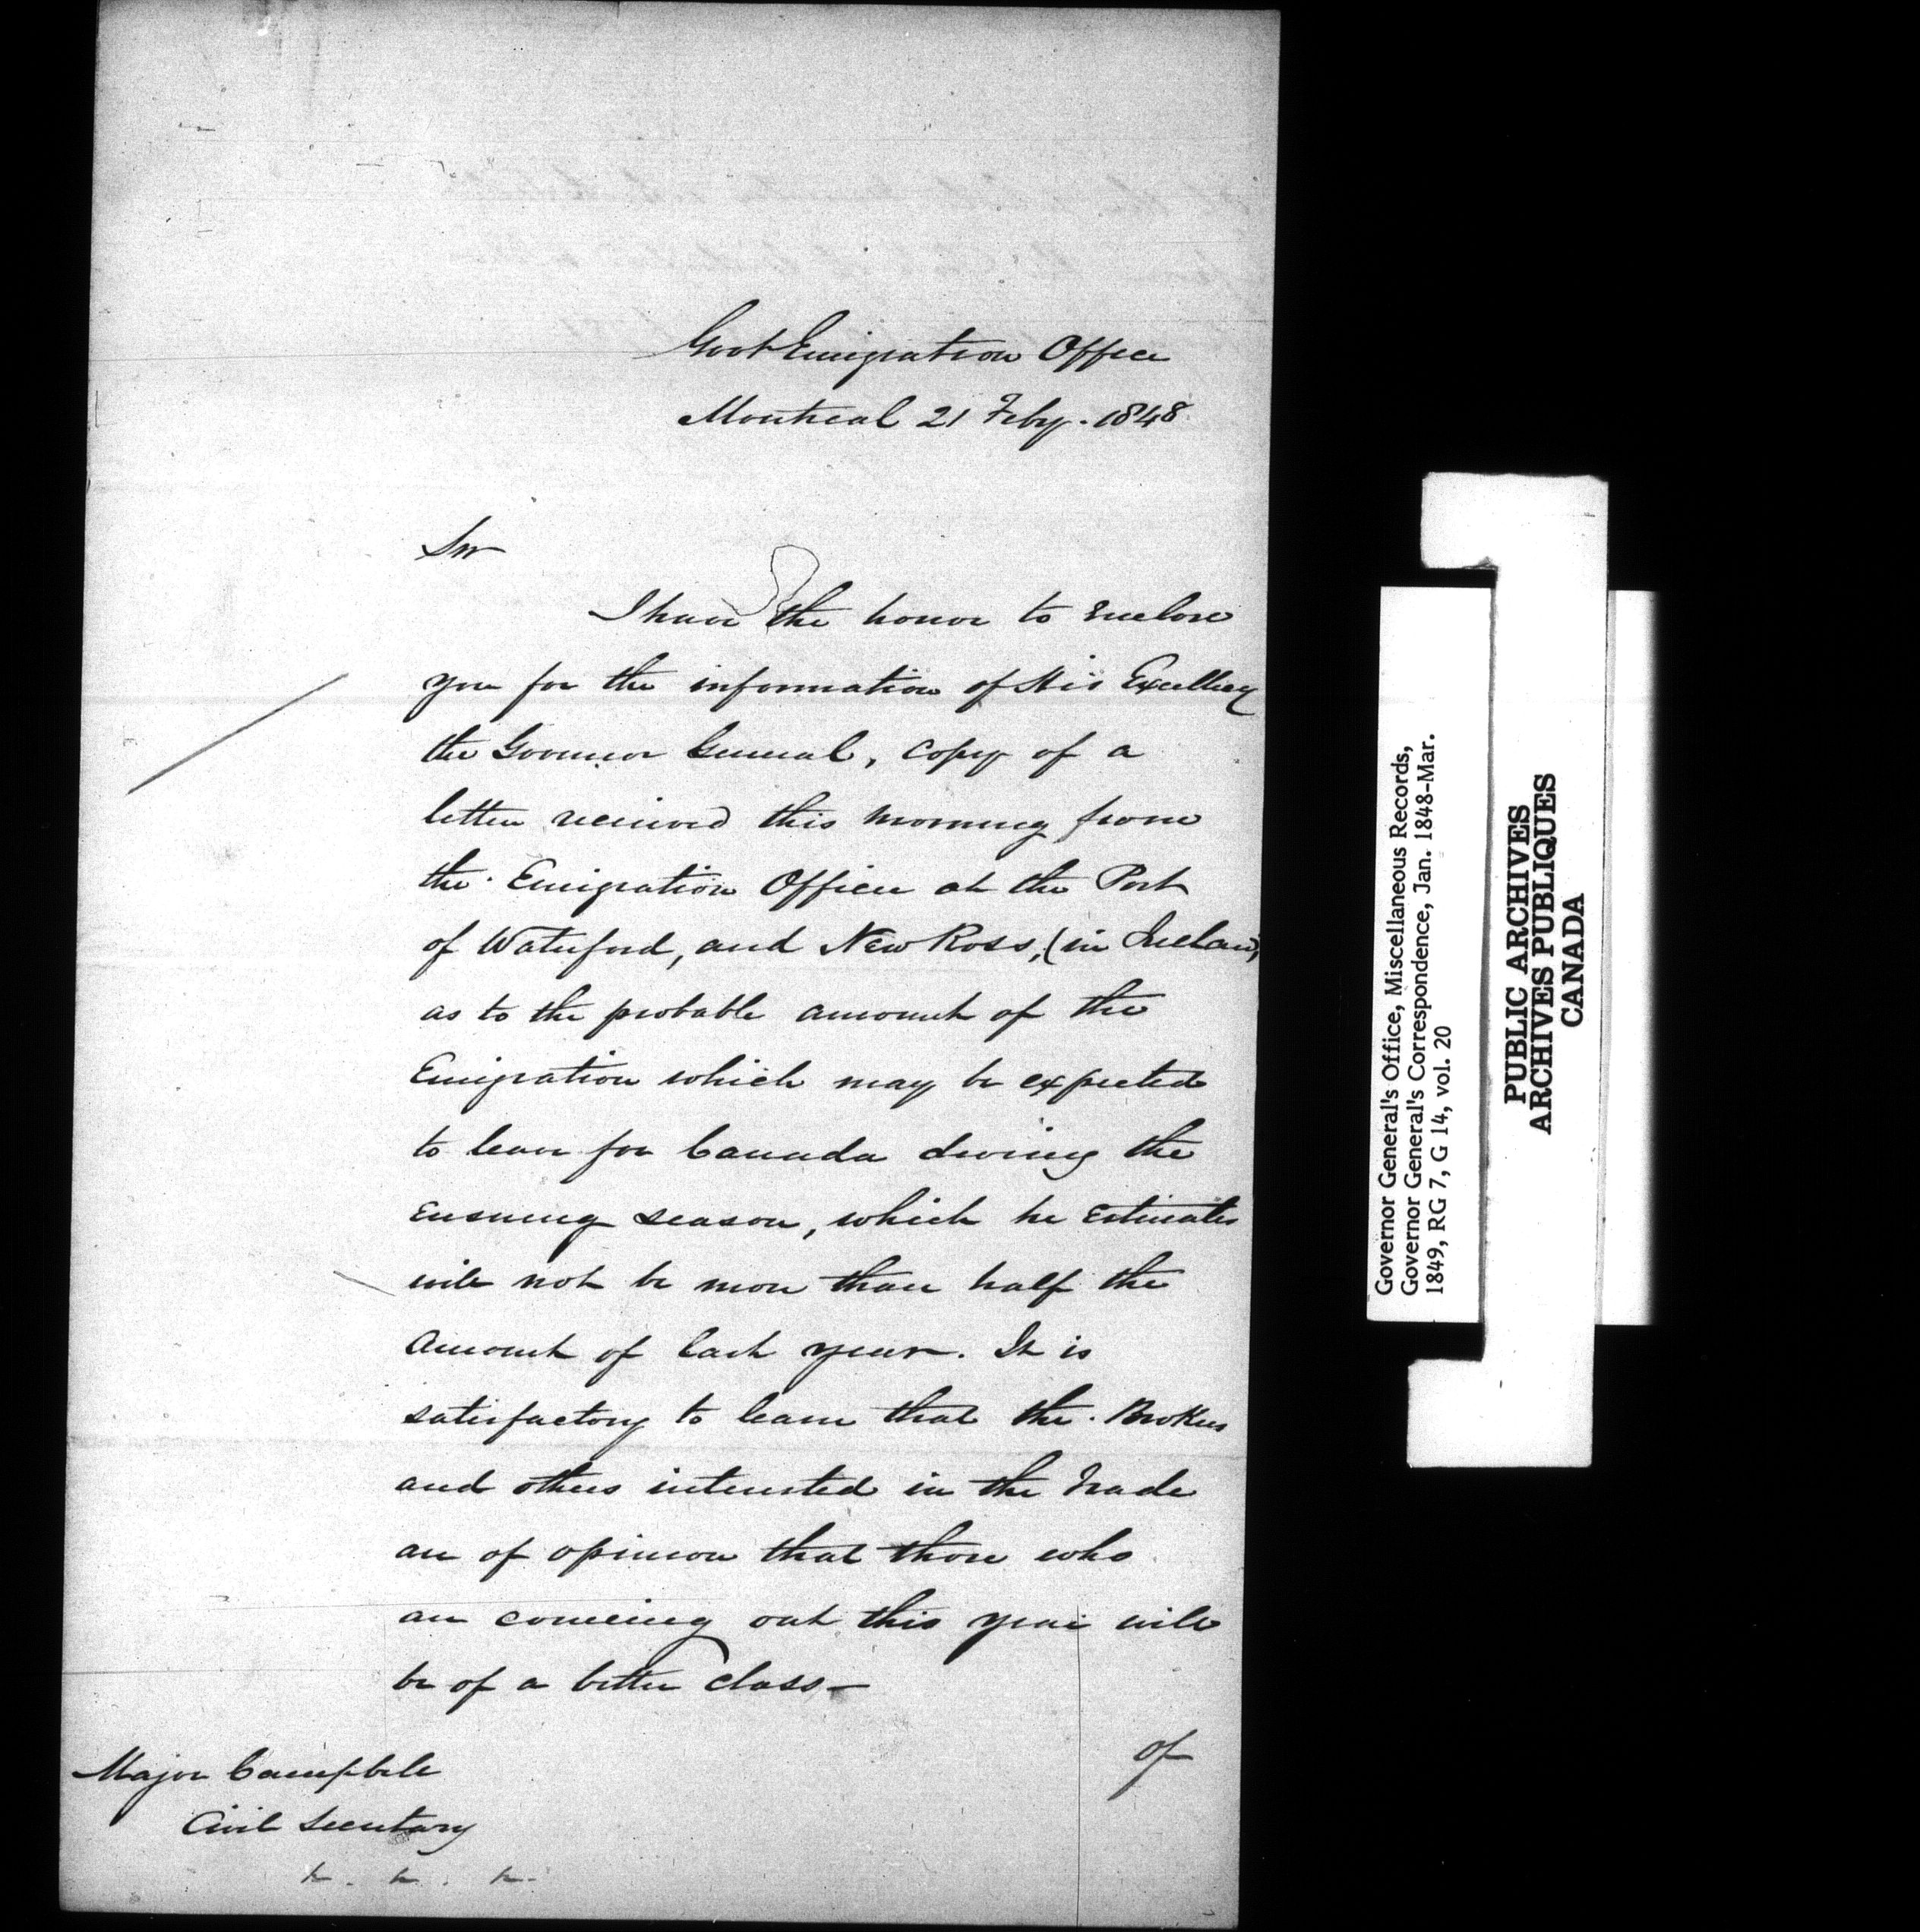 Govt Emigration Office
Montreal 21 Feby. 1848
Sir
I have the honor to Enclose
you for the information of His Excellency
the Governor General, Copy of a
letter received this morning from
the Emigration Officer at the Port
of Waterford, and New Ross, (in Ireland,
as to the probable amount of the
Emigration which may be expected
to leave for Canada during the
Ensuing season, which he Estimates
will not be more than half the
amount of last year. It is
satisfactory to learn that the Brokers
and others interested in the Trade
are of opinion that those who
are comeing out this year will
be of a better class—
of
Major Campbell
Civil Secretary
&. &. &.
Governor General's Office, Miscellaneous Records,
Governor General's Correspondence, Jan. 1848-Mar.
1849, RG 7, G 14, vol. 20
PUBLIC ARCHIVES
ARCHIVES PUBLIQUES
CANADA